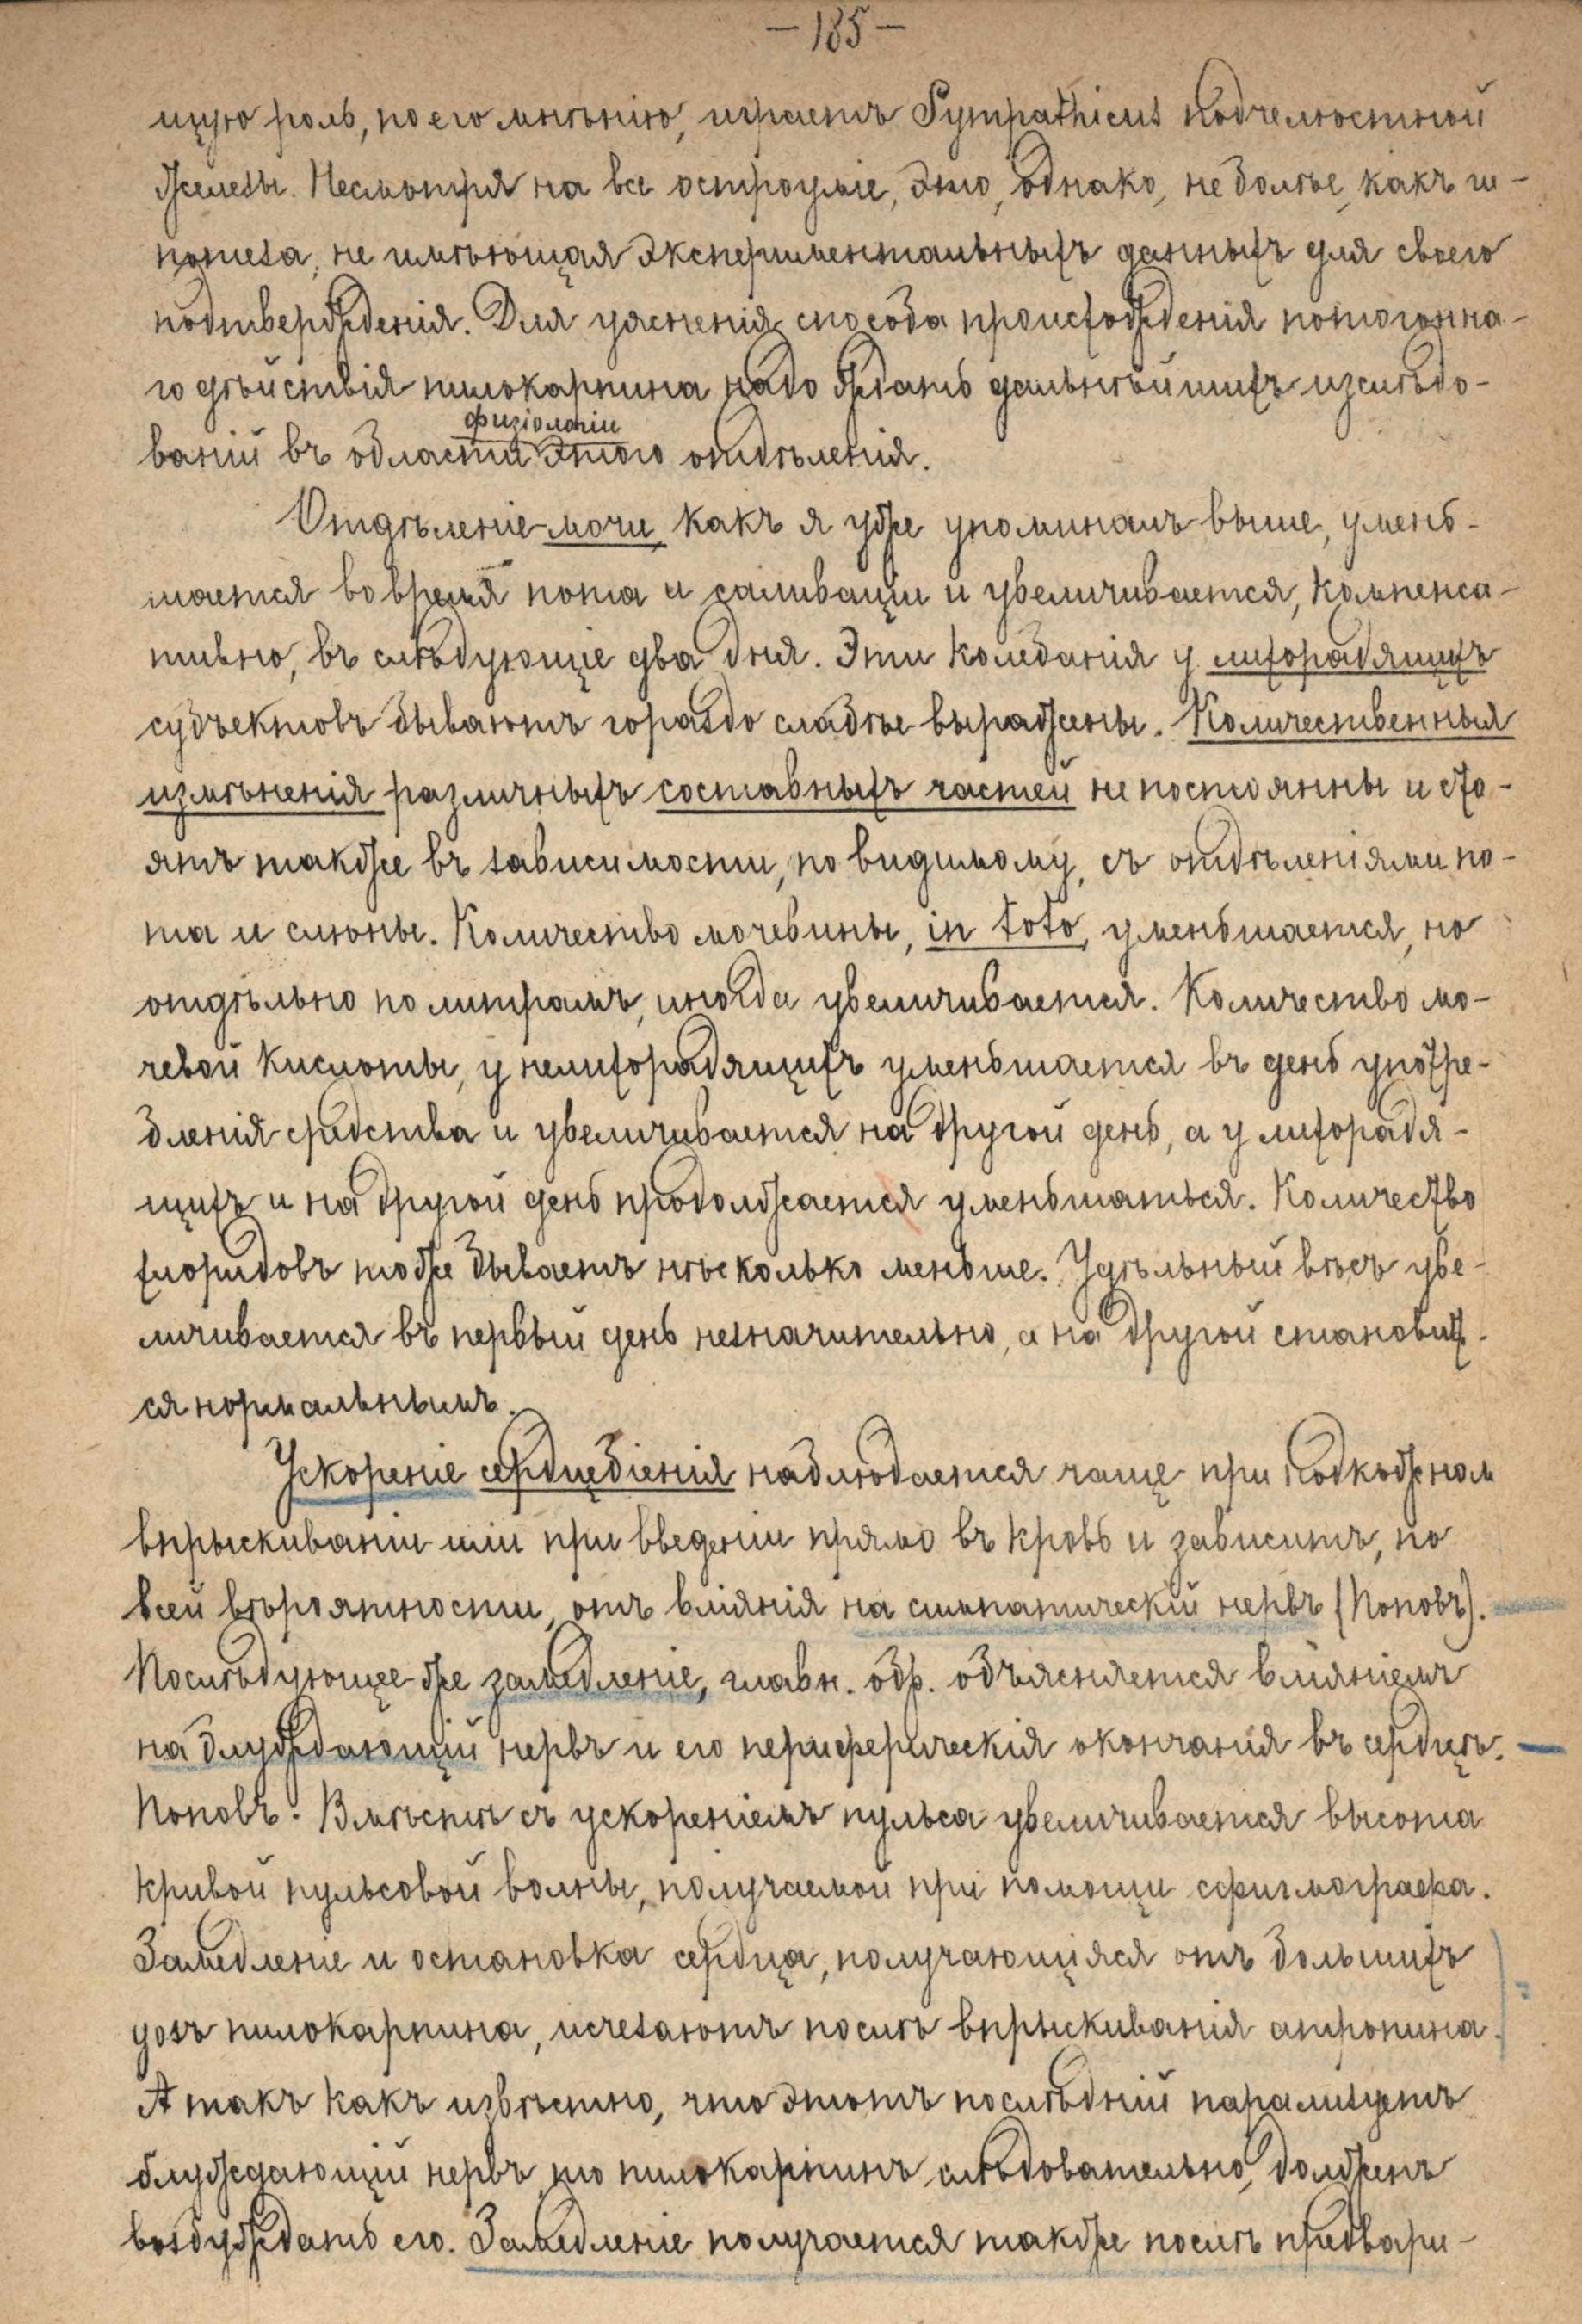 — 185 —
щую роль, по его мнѣнію, играетъ Sympathicus подчелюстной
железы. Несмотря на все остроуміе, это, однако, не болѣе, какъ ги-
потеза, не имѣющая экспериментальныхъ данныхъ для своего
подтвержденія. Для уясненія способа происхожденія потогонна-
го дѣйствія пилокарпина надо ждать дальнѣйшихъ изслѣдо-
физіологіи
ваній въ области этого отдѣленія.
Отдѣленіе мочи, какъ я уже упоминалъ выше, умень-
шается во время пота и саливаціи и увеличивается, компенса-
тивно, въ слѣдующіе два дня. Эти колебанія у лихорадящихъ
субъектовъ бываютъ гораздо слабѣе выражены. Количественныя
измѣненія различныхъ составныхъ частей не постоянны и сто-
ятъ также въ зависимости, по видимому, съ отдѣленіями по-
та и слюны. Количество мочевины, in toto, уменьшается, но
отдѣльно по литрамъ, иногда увеличивается. Количество мо-
чевой кислоты, у нелихорадящихъ уменьшается въ день употре-
бленія средства и увеличивается на другой день, а у лихорадя-
щихъ и на другой день продолжается уменьшаться. Количество
хлоридовъ тоже бываетъ нѣсколько меньше. Удѣльный вѣсъ уве-
личивается въ первый день незначительно, а на другой становит-
ся нормальнымъ.
Ускореніе сердцебіенія наблюдается чаще при подкожном
впрыскиваніи или при введеніи прямо въ кровь и зависитъ, по
всей вѣроятности, отъ вліянія на симпатическій нервъ (Поповъ).
Послѣдующее же замедленіе, главн. обр. объясняется вліяніемъ
на блуждающій нервъ и его периферическія окончанія въ сердцѣ.
Поповъ. Вмѣстѣ съ ускореніемъ пульса увеличивается высота
кривой пульсовой волны, получаемой при помощи сфигмографа.
Замедленіе и остановка сердца, получающіяся отъ большихъ
дозъ пилокарпина, исчезаютъ послѣ впрыскиванія атропина.
А такъ какъ извѣстно, что этотъ послѣдній парализуетъ
блуждающій нервъ, то пилокарпинъ, слѣдовательно, долженъ
возбуждать его. Замедленіе получается также послѣ предвари-